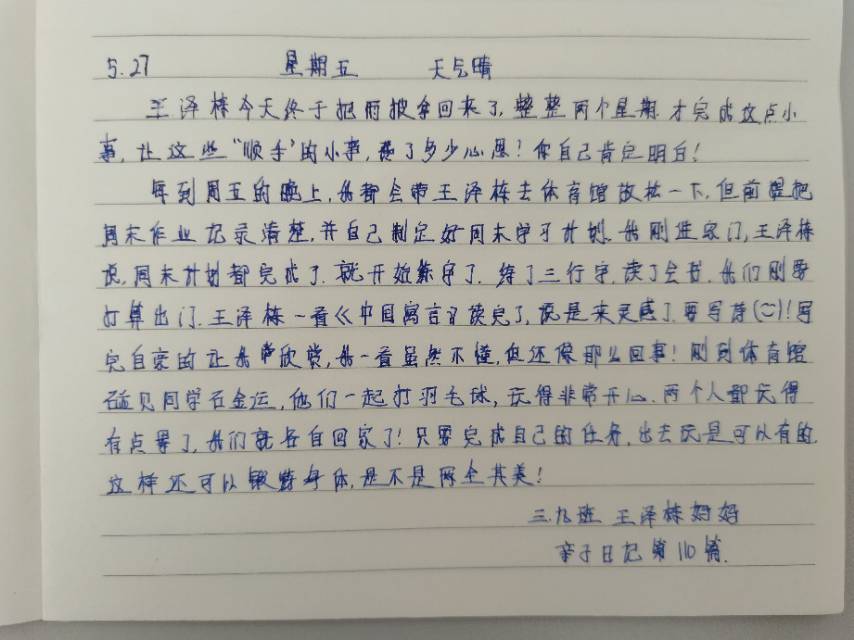 5.27 星期五 天气晴
王泽栋今天终于把雨披拿回来了,整整两个星期才完成这点小
事,让这些“顺手”的小事,费了多少心思!你自己肯定明白!
每到周五的晚上,我都会带王泽栋去体育馆放松一下,但前提把
周末作业记录清楚,并自己制定好周末学习计划。我刚进家门,王泽栋
说,周末计划都完成了,就开始练字了,练了三行字,读了会书,我们刚要
打算出门,王泽栋一看《中国寓言》读完了,说是来灵感了,要写诗(二)!写
完自豪的让我帮欣赏,我一看虽然不懂,但还像那么回事!刚到体育馆
碰见同学石金运,他们一起打羽毛球,玩得非常开心,两个人都玩得
有点累了,我们就各自回家了!只要完成自己的任务,出去玩是可以有的,
这样还可以锻炼身体,是不是两全其美!
三.九班 王泽栋妈妈
亲子日记第110篇.